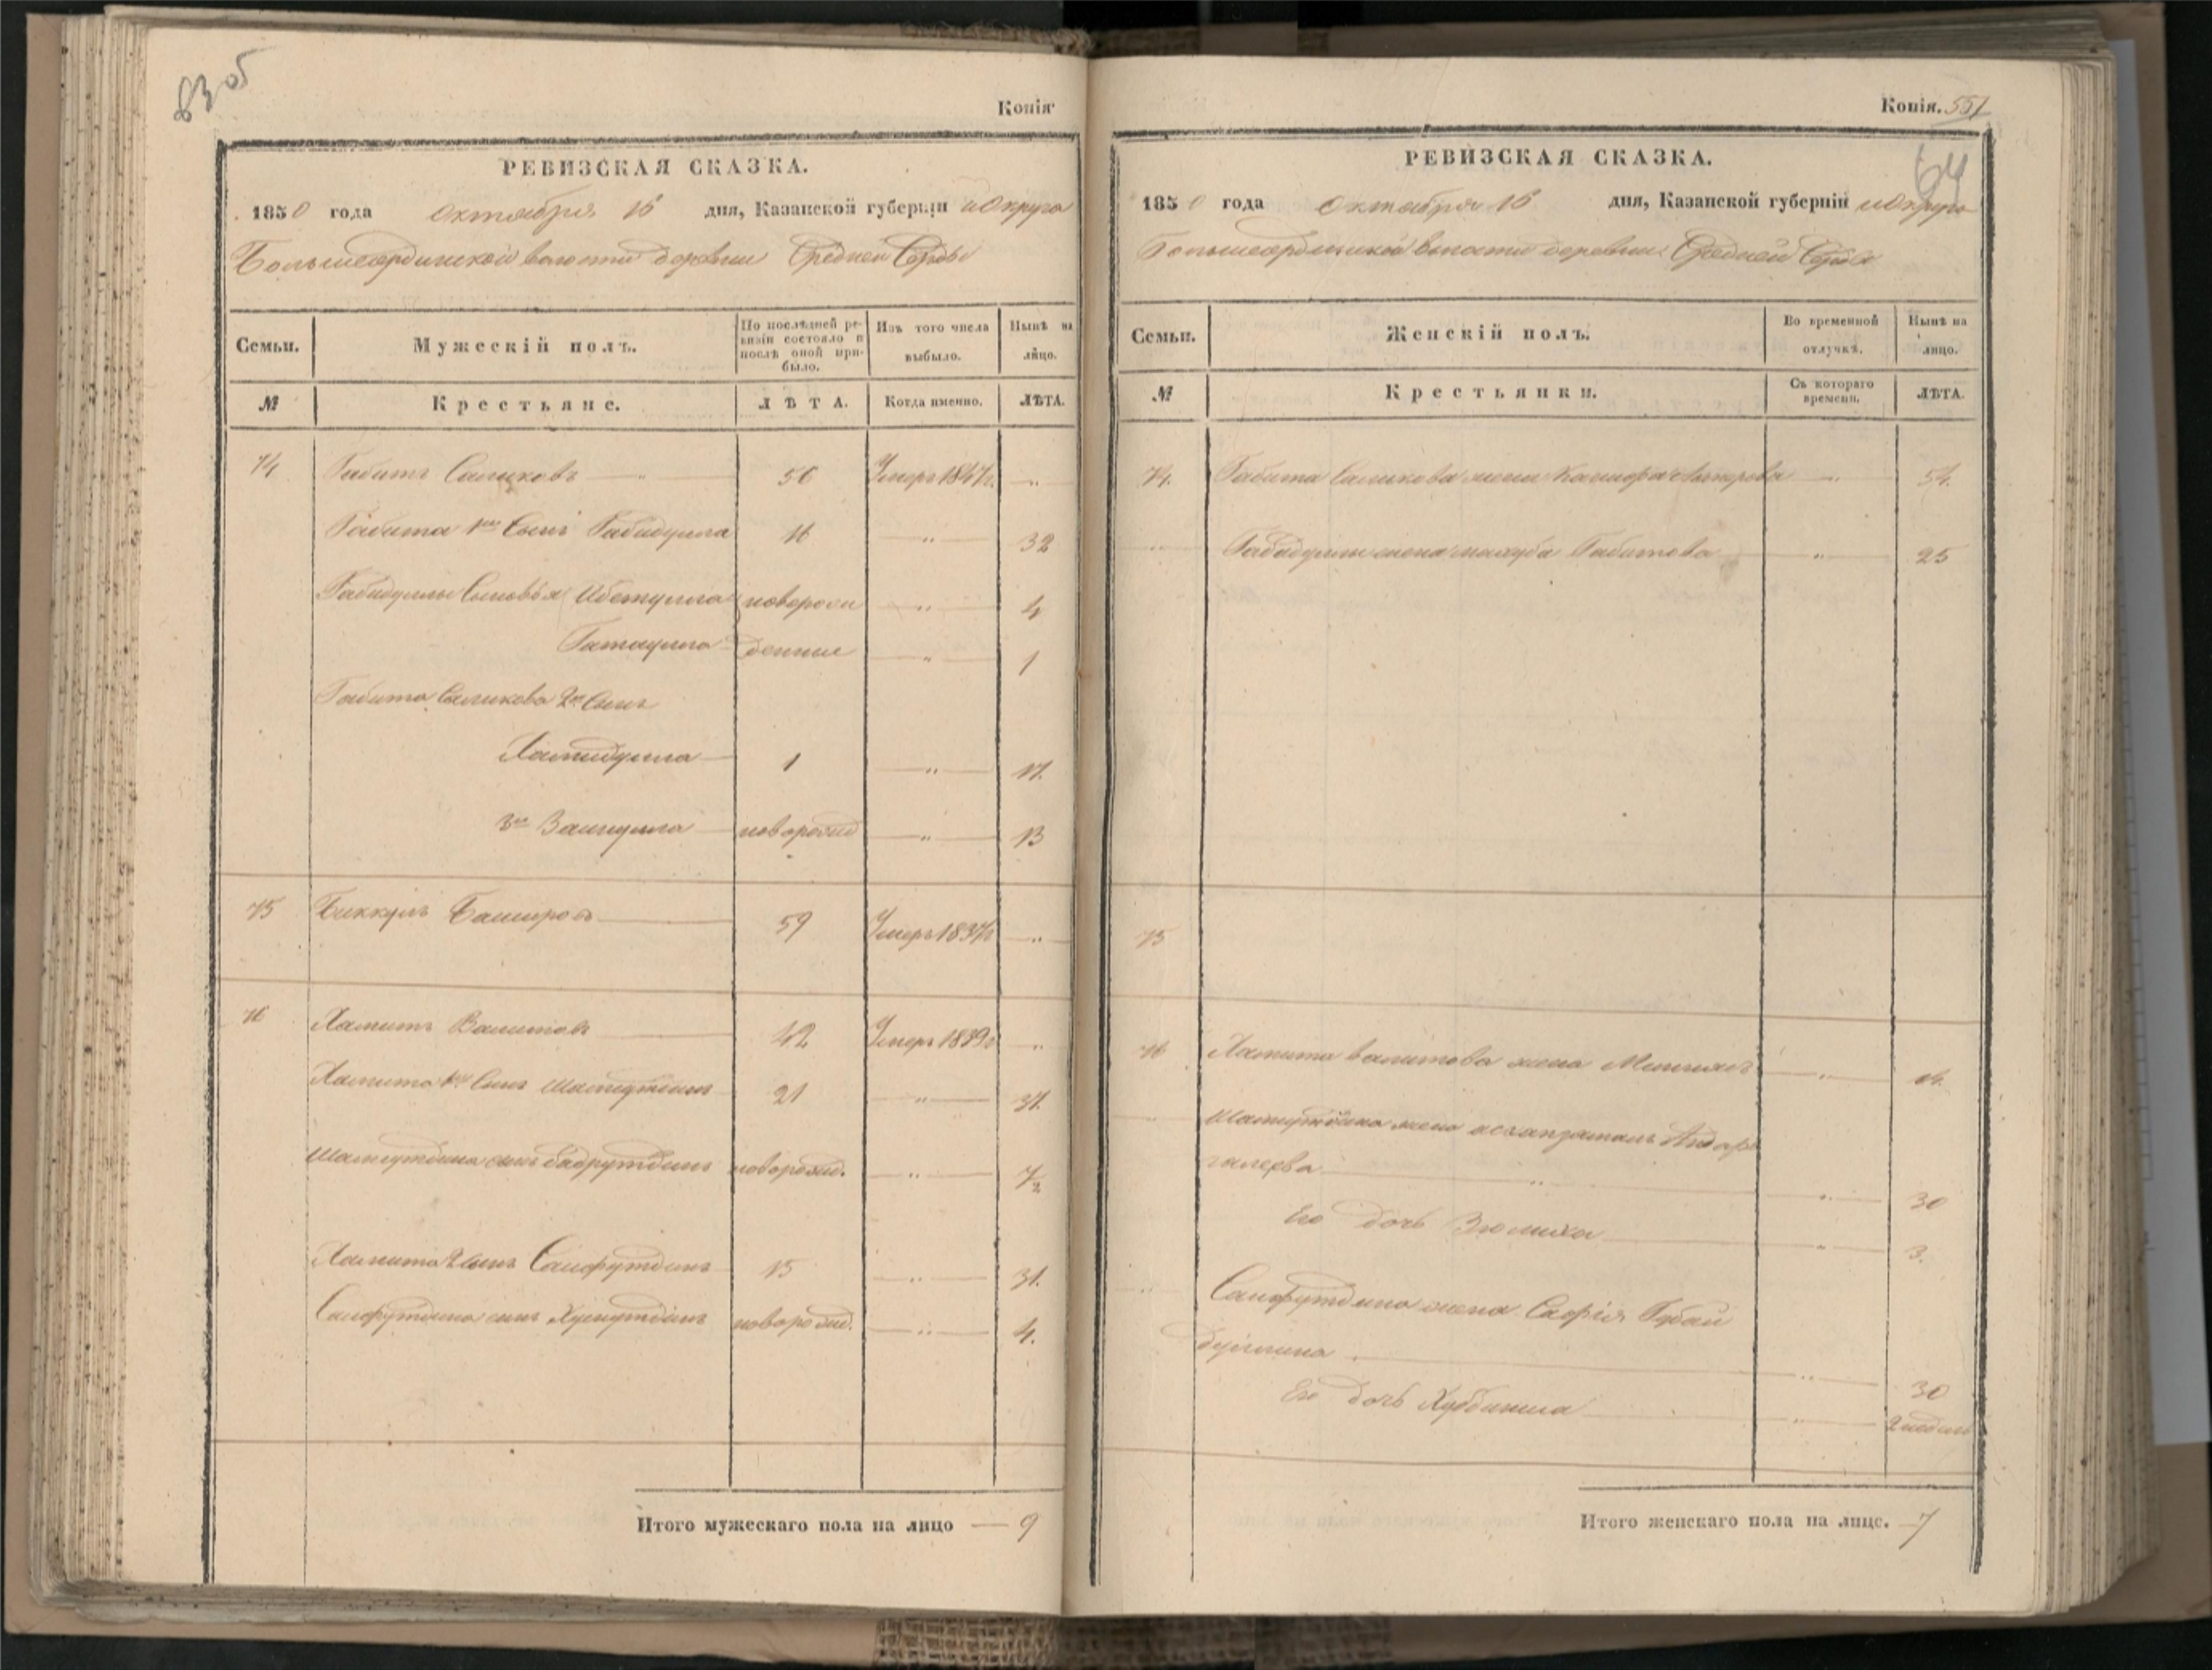 83 об
Копія
РЕВИЗСКАЯ СКАЗКА.
1850 года октября 16 дня, Казанской губерніи и округа
Большесардинской волости деревни Средней
Семьи. Мужескій полъ. По послѣдней ревизіи состояло и послѣ оной прибыло. Изъ того числа выбыло. Нынѣ на лицо.
№ Крестьяне. ЛѢТА. Когда именно. ЛѢТА.
74 Габитъ Салиховъ — 56 Умеръ 1847 г. — „
Габита 1й Сынъ Габидулла 16 — „ — 32
Габидуллы Сыновья Ибетулла новорож — „ — 4
Гатаулла денные — „ — 1
Габита Салихова 2й Сынъ
Хамидулла — 1 — „ — 17.
3й Зайнулла — новорожд — „ — 13
75 Биккулъ Башировъ — 59 Умеръ 1837 г — „
76 Хамитъ Валитовъ — 42 Умеръ 1839 г „
Хамита 1й Сынъ Шамсутдинъ 21 — „ — 37.
Шамсутдина сынъ Бадрутдинъ новорожд. — „ — 7½
Хамита 2 сынъ Сайфутдинъ 15 — „ — 31.
Сайфутдина сынъ Хуснутдинъ новорожд. — „ — 4.
Итого мужескаго пола на лицо — 9
Копія. 551
64
РЕВИЗСКАЯ СКАЗКА.
1850 года октября 16 дня, Казанской губерніи и округа
Большесардинской волости деревни Средней
Семьи. Женскій полъ. Во временной отлучкѣ. Нынѣ на лицо.
№ Крестьянки. Съ котораго времени. ЛѢТА.
74. Габита Салихова жена — „ — 54.
„ Габидуллы жена Махуба Габитова — „ — 25
75
76 Хамита Валитова жена — „ —
Шамсутдина жена
галеева — „ — „ — 30
Его дочь Зюлиха — „ — 3.
„ Сайфутдина жена Сафія Губай
дуллина — „ — 30
Его дочь — „ — 2 недель
Итого женскаго пола на лицо. — 7